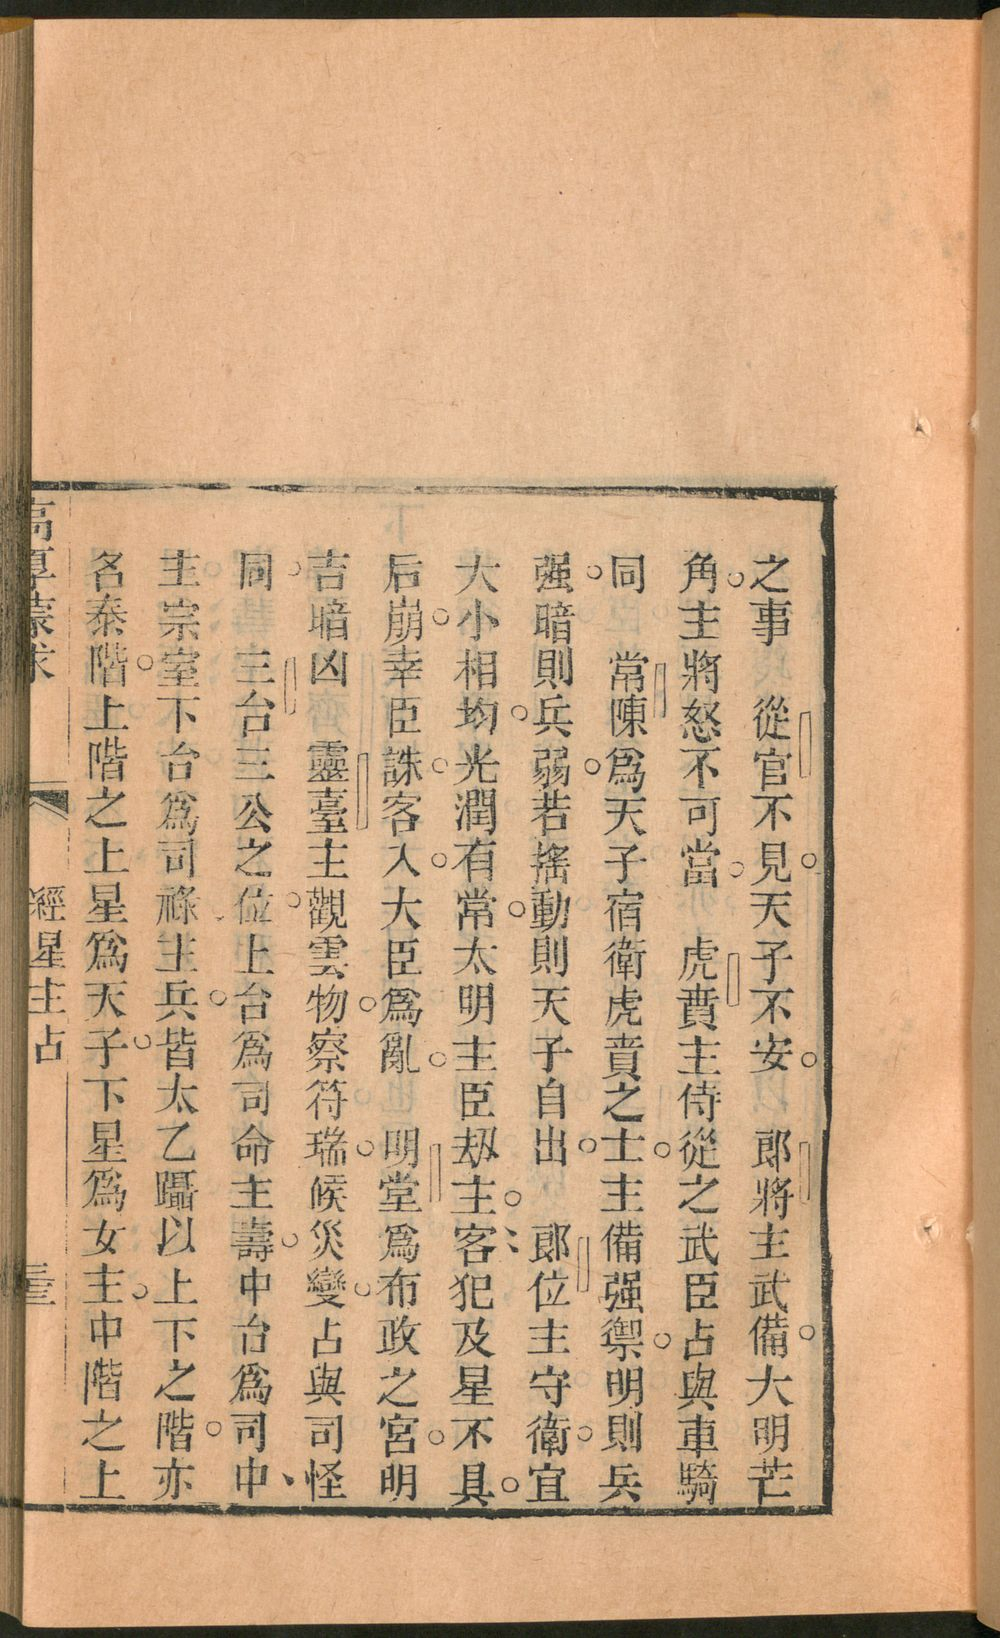 之事　從官不見天子不安　郎將主武備大明芒
角主將怒不可當　虎賁主侍從之武臣占與車騎
同　常陳爲天子宿衛虎賁之士主備强禦明則兵
强暗則兵弱若搖動則天子自出　郎位主守衛宜
大小相均光潤有常太明主臣刼主客犯及星不具
后崩幸臣誅客入大臣爲亂　明堂爲布政之宮明
吉暗凶　靈臺主觀雲物察符瑞候災變占與司怪
同　三台三公之位上台爲司命主壽中台爲司中
主宗室下台爲司祿主兵皆太乙躡以上下之階亦
名泰階上階之上星爲天子下星爲女主中階之上
高厚蒙求　經星主占